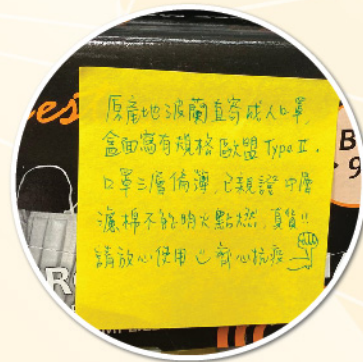 est
原產地波蘭直寄成人口罩,
盒面寫有規格歐盟 Type II.
口罩三層偏薄,已親證中層
濾棉不能明火點燃,真貨!!
請放心使用 齊心抗疫
B
9
R